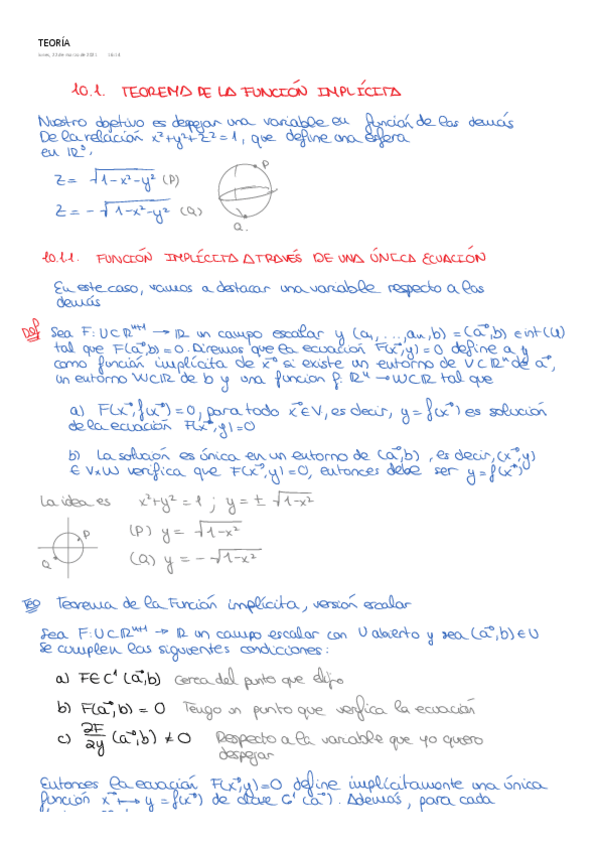 TEORÍA
10.1. TEOREMA DE LA FUNCIÓN IMPLÍCITA
Nuestro objetivo es despejar una variable en función de las demás
De la relación x²+y²+z²=1, que define una esfera
en ℝ³.
z = √1-x²-y² (P)
z = -√1-x²-y² (Q)
P
Q.
10.1.1. FUNCIÓN IMPLÍCITA A TRAVÉS DE UNA ÚNICA ECUACIÓN
En este caso, vamos a destacar una variable respecto a las
demás
Def Sea F: U⊂ℝⁿ⁺¹ → ℝ un campo escalar y (a₁, ..., aₙ, b) = (a⃗, b) ∈ int(U)
tal que F(a⃗, b) = 0. Diremos que la ecuación F(x⃗, y) = 0 define a y
como función implícita de x⃗ si existe un entorno de V⊂ℝⁿ de a⃗,
un entorno W⊂ℝ de b y una funcion f: ℝⁿ → W⊂ℝ tal que
a) F(x⃗, f(x⃗)) = 0, para todo x⃗∈V, es decir, y = f(x⃗) es solución
de la ecuación F(x⃗, y) = 0
b) La solución es única en un entorno de (a⃗, b), es decir, (x⃗, y)
∈ V×W verifica que F(x⃗, y) = 0, entonces debe ser y = f(x⃗)
La idea es x²+y² = 1 ; y = ± √1-x²
(P) y = √1-x²
(Q) y = -√1-x²
P
Q
Teo Teorema de la Función implícita, versión escalar
Sea F: U⊂ℝⁿ⁺¹ → ℝ un campo escalar con U abierto y sea (a⃗, b)∈U
Se cumplen las siguientes condiciones:
a) F∈C¹ (a⃗, b) Cerca del punto que elijo
b) F(a⃗, b) = 0 Tengo un punto que verifica la ecuación
c) ∂F/∂y (a⃗, b) ≠ 0 Respecto a la variable que yo quiero
despejar
Entonces la ecuación F(x⃗, y) = 0 define implícitamente una única
función x⃗ ↦ y = f(x⃗) de clase C¹ (a⃗). Además, para cada